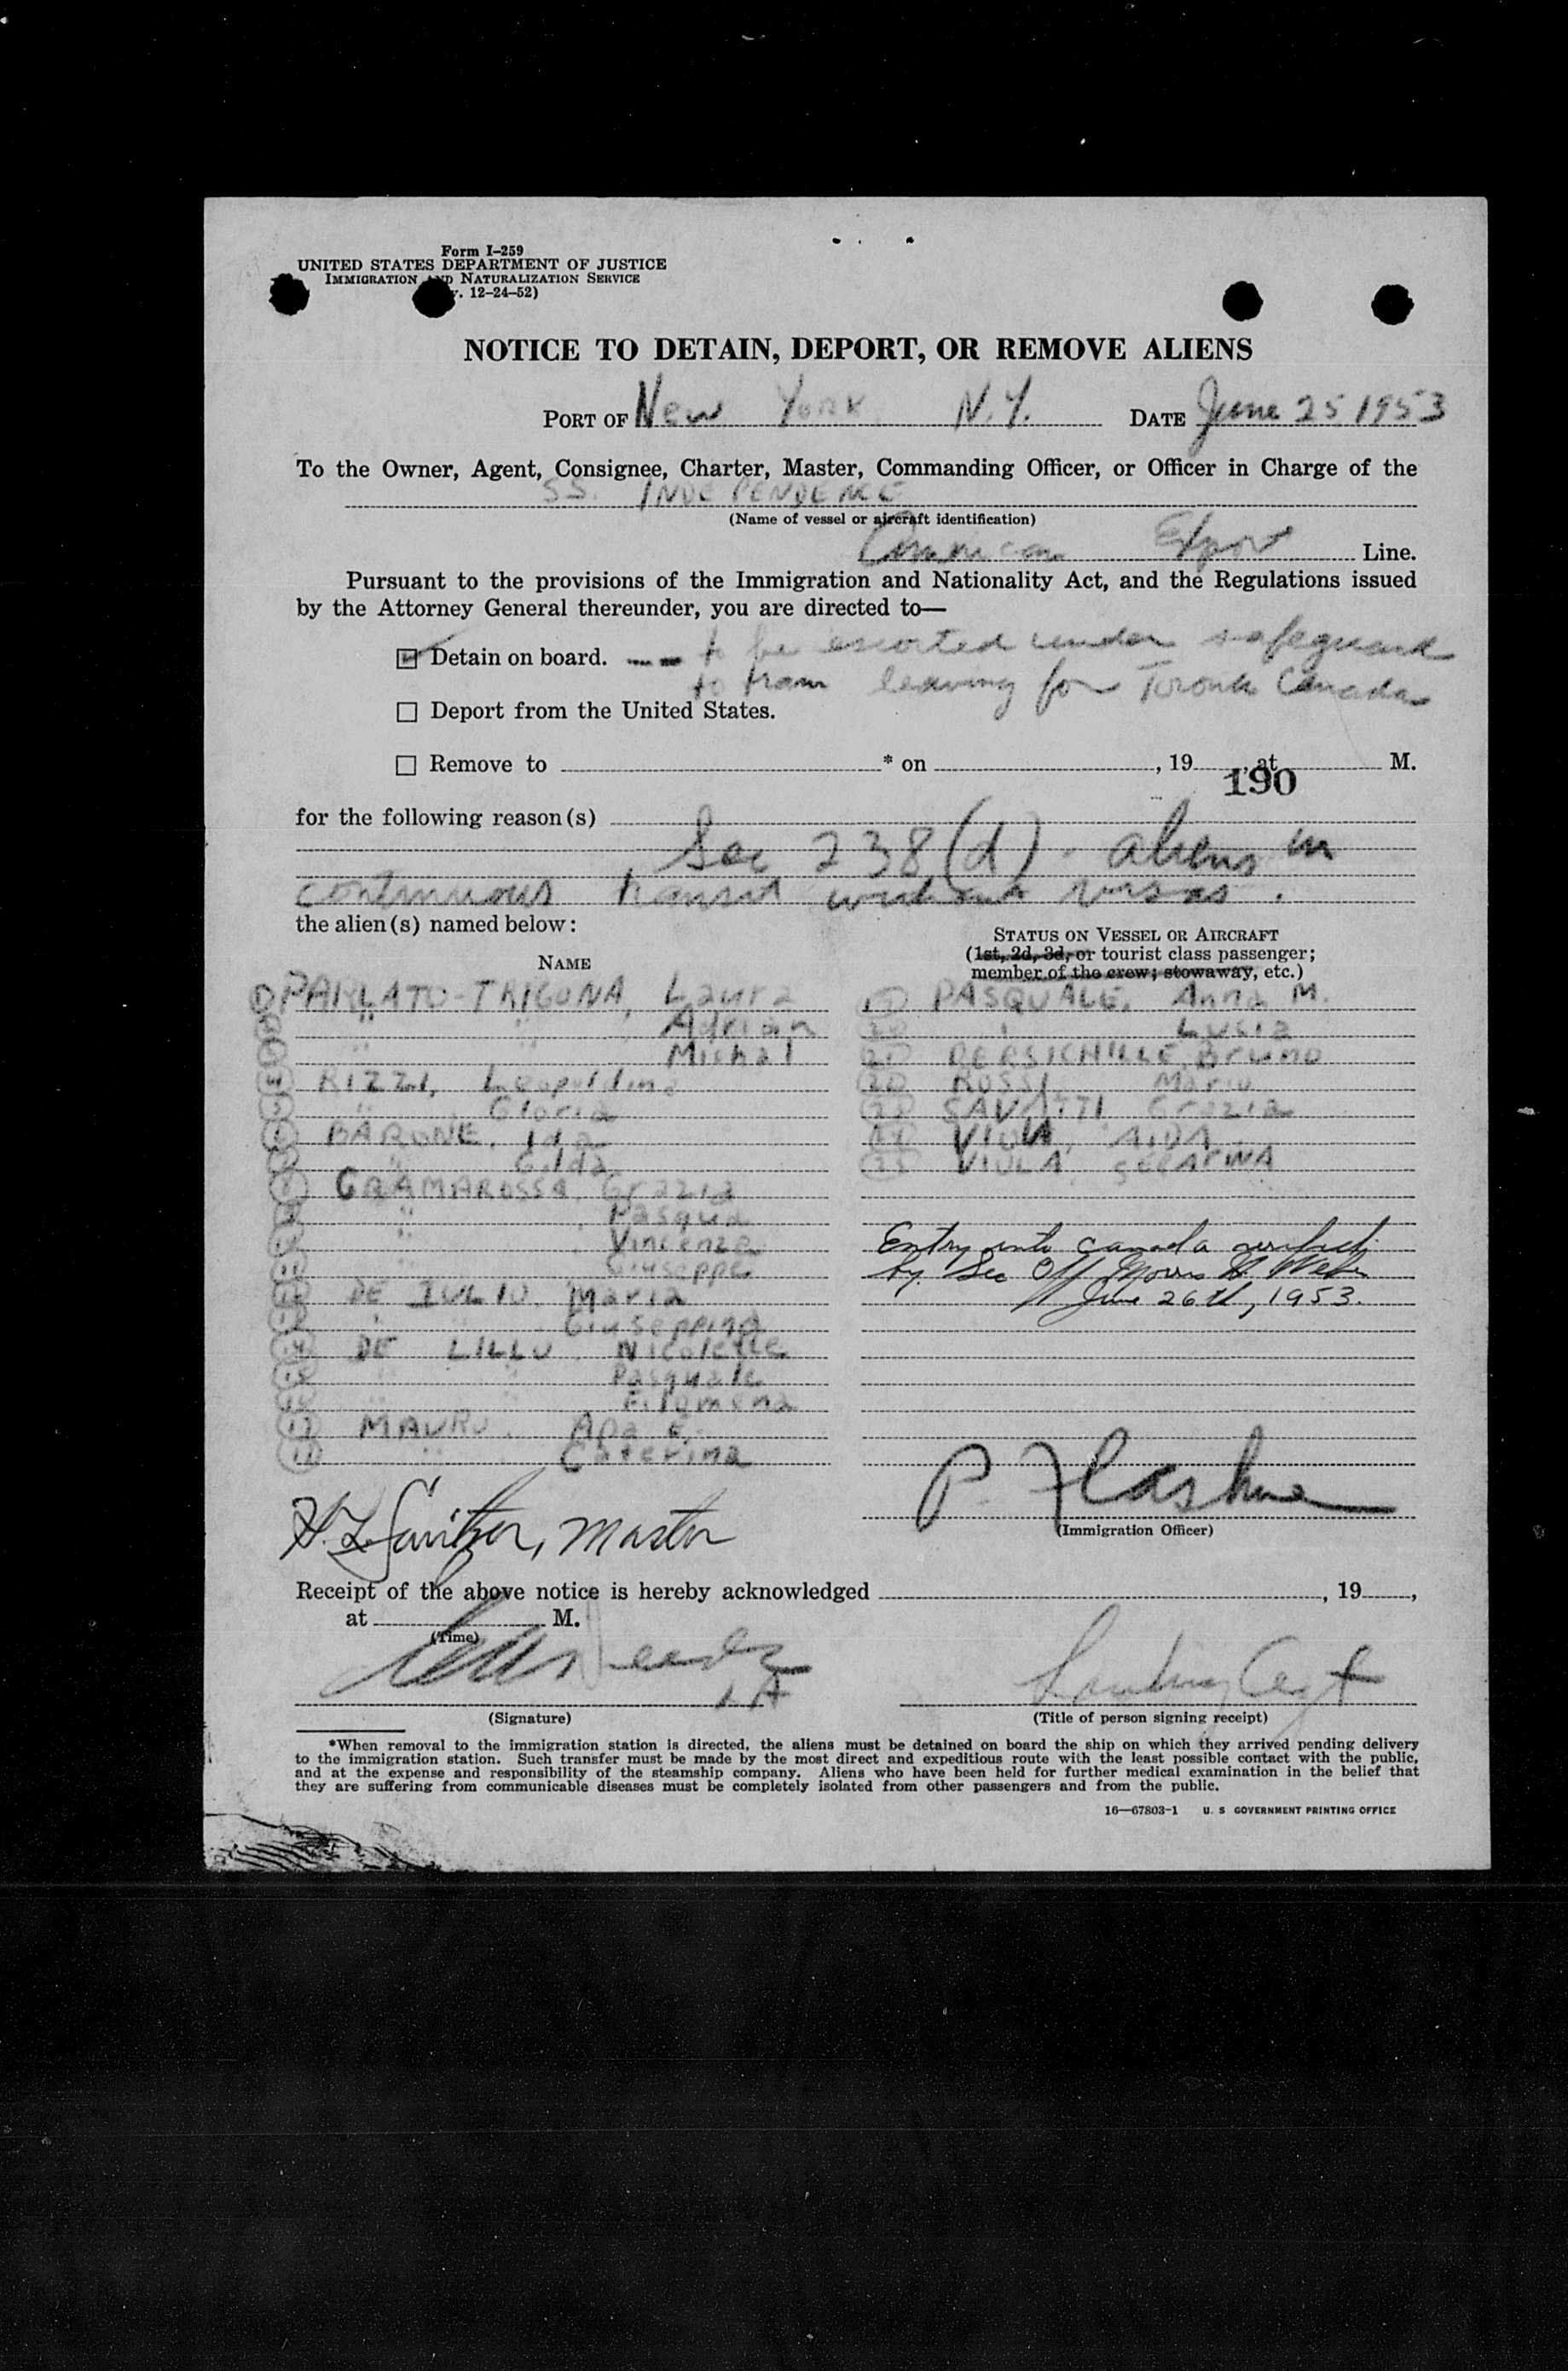 Form I-259
UNITED STATES DEPARTMENT OF JUSTICE
IMMIGRATION AND NATURALIZATION SERVICE
. 12-24-52)
NOTICE TO DETAIN, DEPORT, OR REMOVE ALIENS
PORT OF New York N.Y. DATE June 25 1953
To the Owner, Agent, Consignee, Charter, Master, Commanding Officer, or Officer in Charge of the
SS. INDEPENDENCE
(Name of vessel or aircraft identification)
American Export Line.
Pursuant to the provisions of the Immigration and Nationality Act, and the Regulations issued
by the Attorney General thereunder, you are directed to—
Detain on board. -- to be escorted under safeguard
to train leaving for Toronto Canada
Deport from the United States.
Remove to * on , 19 , at M.
190
for the following reason(s)
Sec 238(d) - aliens in
continuous transit without visas.
the alien(s) named below:
STATUS ON VESSEL OR AIRCRAFT
(1st, 2d, 3d, or tourist class passenger;
member of the crew; stowaway, etc.)
NAME
1 PARLATO-TRIGONA, Laura
2 " " , Adrian
3 " " Michal
4 RIZZI, Leopoldina
5 " , Gloria
6 BARONE, Ida
7 " Gilda
8 GRAMAROSSA, Grazia
9 " , Pasqua
10 " , Vincenza
11 " , Giuseppe
12 DE IULIO, Maria
13 " " Giuseppina
14 DE LILLO, Nicolette
15 " " Pasquale
16 " " Filomena
17 MAURO, Ada E.
18 " Caterina
19 PASQUALE, Anna M.
20 " Lucia
21 PERSICHILLE, Bruno
22 ROSSI Mario
23 SAVATTI Grazia
24 VIOLA, AIDA
25 VIOLA SERAFINA
Entry into Canada verified
by Sec Off Morris H.
June 26th, 1953.
P. Flashne
(Immigration Officer)
H. L. , Master
Receipt of the above notice is hereby acknowledged , 19 ,
at M.
(Time)
Landing Agt
(Signature)
(Title of person signing receipt)
*When removal to the immigration station is directed, the aliens must be detained on board the ship on which they arrived pending delivery
to the immigration station. Such transfer must be made by the most direct and expeditious route with the least possible contact with the public,
and at the expense and responsibility of the steamship company. Aliens who have been held for further medical examination in the belief that
they are suffering from communicable diseases must be completely isolated from other passengers and from the public.
16—67803-1 U. S GOVERNMENT PRINTING OFFICE